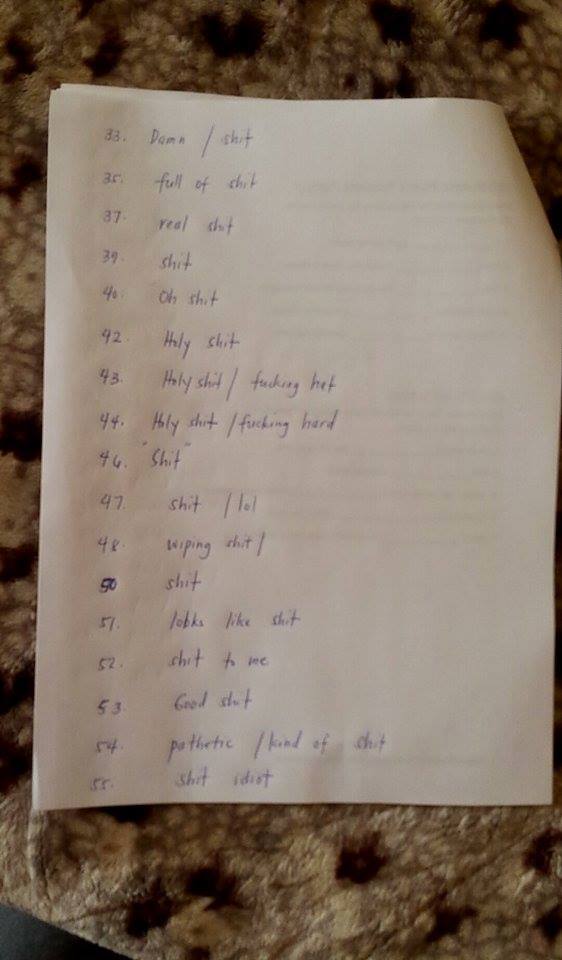 33. Damn / shit
35. full of shit
37. real shit
39. shit
40. Oh shit
42. Holy shit
43. Holy shit / fucking hot
44. Holy shit / fucking hard
46. "Shit"
47. shit / lol
48. wiping shit /
50 shit
51. lobks like shit
52. shit to me
53. Good shit
54. pathetic / kind of shit
55. shit idiot